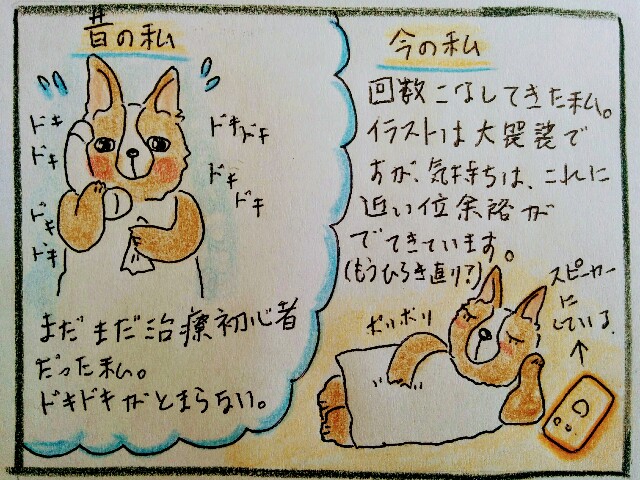 昔の私
ドキ
ドキ
ドキ
ドキ
ドキドキ
ドキ
ドキ
まだまだ治療初心者
だった私。
ドキドキがとまらない。
今の私
回数こなしてきた私。
イラストは大袈裟で
すが、気持ちは、これに
近い位余裕が
でできています。
(もうひらき直り?)
ポリポリ
スピーカー
に
している。